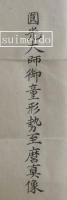 圓光大師御童形勢至麿真像
suimeido